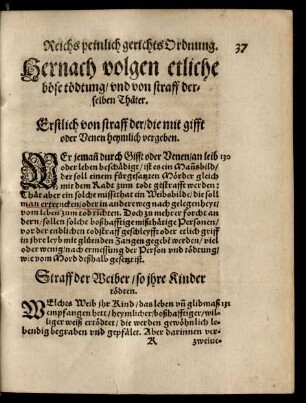 Reichs peinlich gerichts Ordnung. 37
Hernach volgen etliche
böse tödtung / vnd von straff der-
selben Thäter.
Erstlich von straff der / die mit gifft
oder Venen heymlich vergeben.
WEr jemañ durch Gifft oder Venen / an leib 130
oder leben beschädigt / ist es ein Mañsbild /
der soll einem fürgesetzten Mörder gleich
mit dem Radt zum todt gestrafft werden:
Thät aber ein solche missethat ein Weibsbilde / die soll
man ertrencken / oder in ander weg nach gelegenheyt /
vom leben zum tod richten. Doch zu mehrer forcht an
dern / sollen solche boßhafftige mißthätige Personen /
vor der endlichen todstraff geschleyfft oder etlich griff
in jhre leyb mit glüenden Zangen gegebt werden / viel
oder wenig / nach ermessung der Person vnd tödtung /
wie vom Mord deßhalb gesetzt ist.
Straff der Weiber / so jhre Kinder
tödten.
WElches Weib jhr Kind / das leben vñ glidmaß 131
empfangen hett / heymlicher / boßhafftiger / wil-
liger weiß ertödtet / die werden gewöhnlich le-
bendig begraben vnd gepfälet. Aber darinnen ver-
K zweiue-